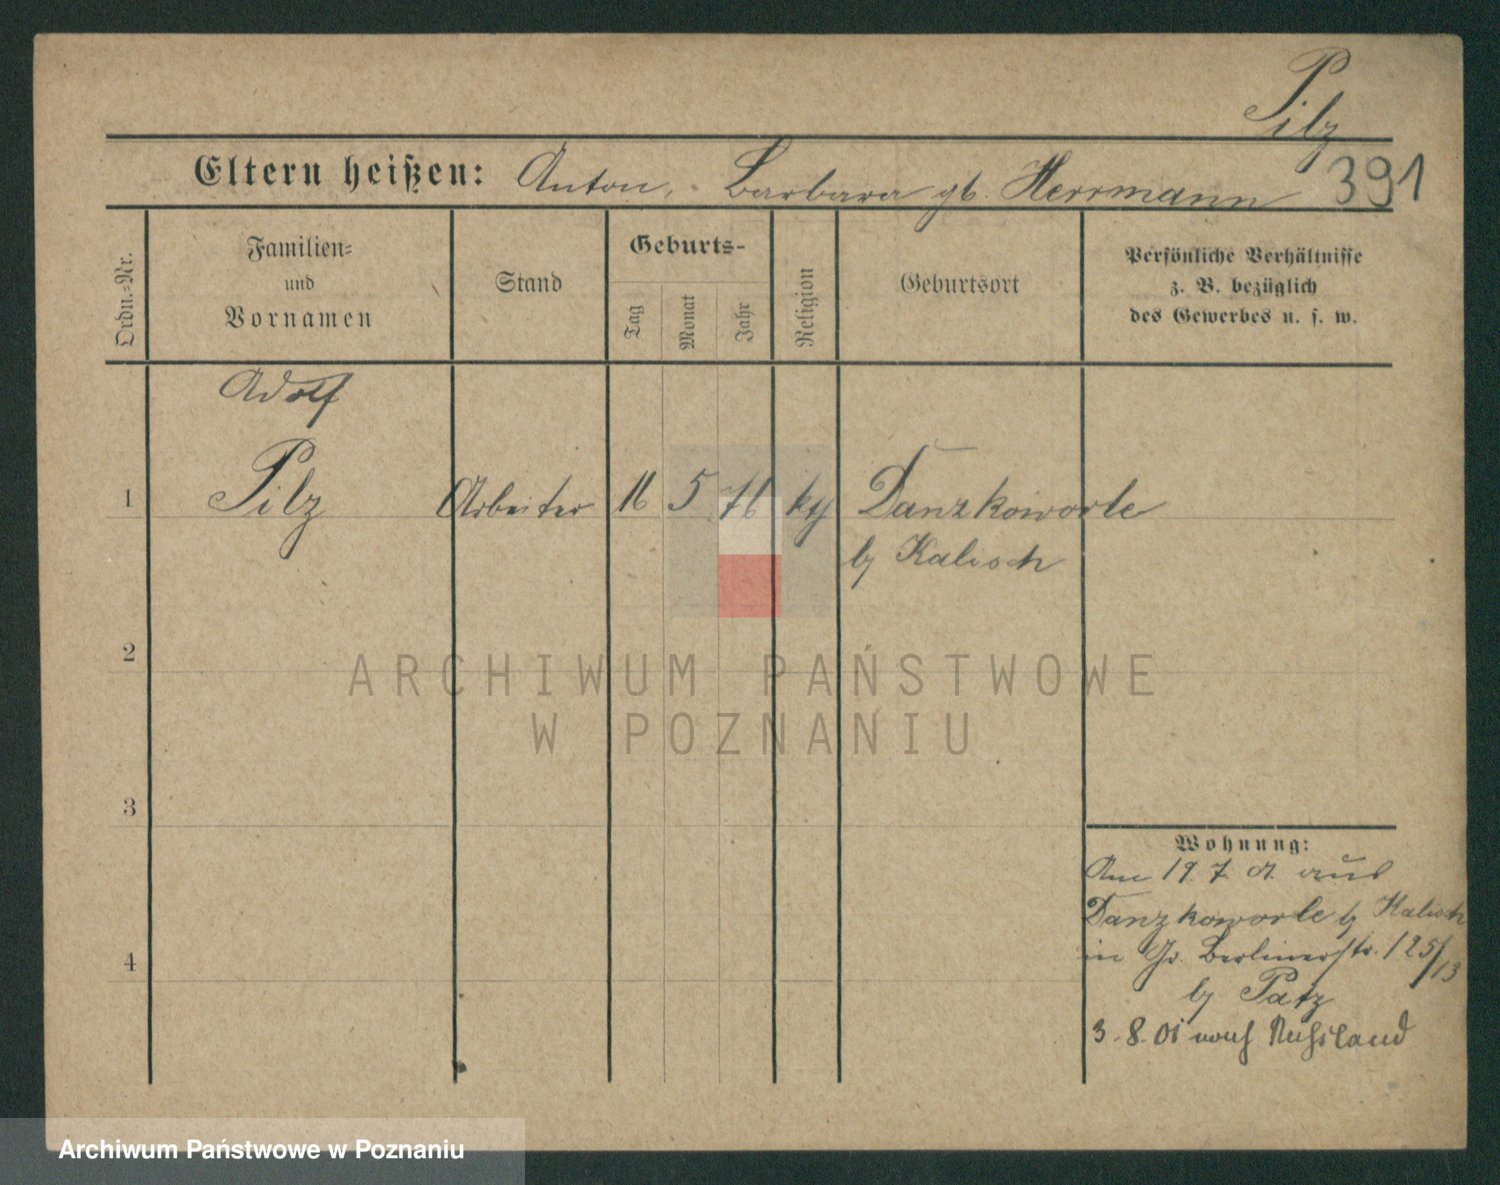 Pilz
Eltern heißen: Anton, Barbara gb. Herrmann 391
Ordn.-Nr.
Familien-
und
Vornamen
Stand
Geburts-
Tag
Monat
Jahr
Religion
Geburtsort
Persönliche Verhältnisse
z. B. bezüglich
des Gewerbes u. s. w.
Adolf
1 Pilz Arbeiter 16 5 76 Danzkoworle
by Kalisch
2
3
4
Wohnung:
Am 19 7. 01. aus
Danzkoworle by Kalisch
in Gr. Berlinerstr. 125/13
by Patz
3. 8. 01 nach Rußland
ARCHIWUM PAŃSTWOWE
W POZNANIU
Archiwum Państwowe w Poznaniu